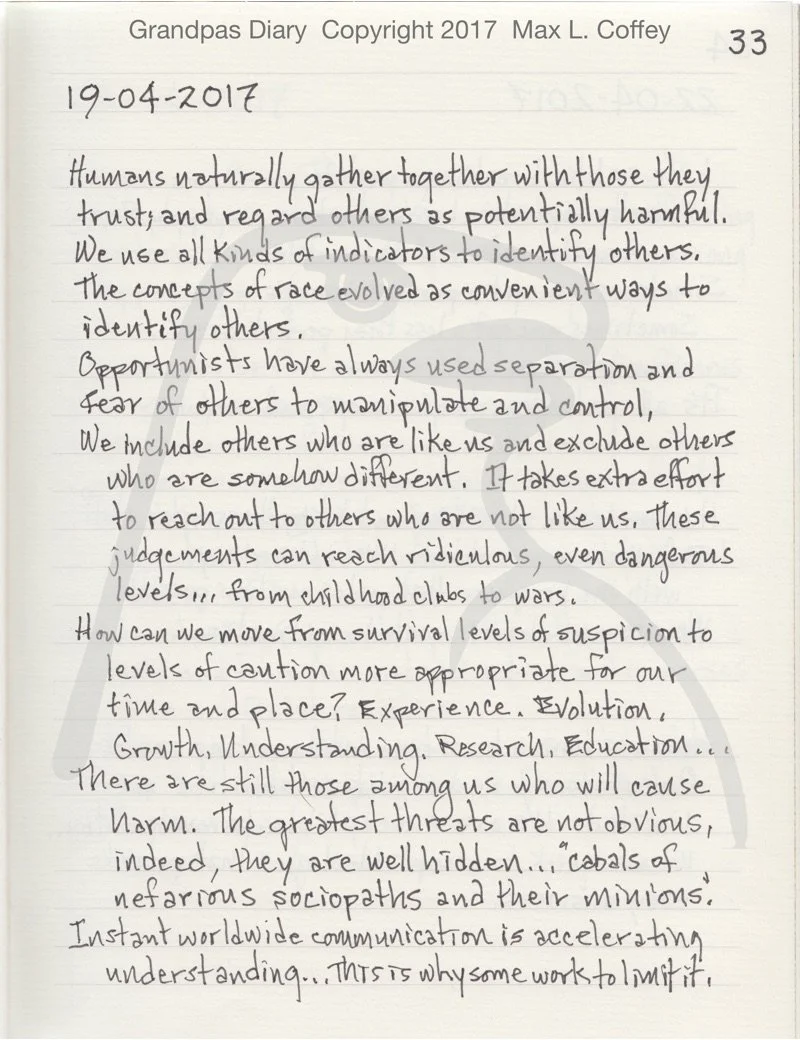 Grandpas Diary Copyright 2017 Max L. Coffey
33
19-04-2017
Humans naturally gather together with those they
trust; and regard others as potentially harmful.
We use all kinds of indicators to identify others.
The concepts of race evolved as convenient ways to
identify others.
Opportunists have always used separation and
fear of others to manipulate and control,
We include others who are like us and exclude others
who are somehow different. It takes extra effort
to reach out to others who are not like us. These
judgements can reach ridiculous, even dangerous
levels... from childhood clubs to wars.
How can we move from survival levels of suspicion to
levels of caution more appropriate for our
time and place? Experience. Evolution.
Growth. Understanding. Research. Education...
There are still those among us who will cause
harm. The greatest threats are not obvious,
indeed, they are well hidden... "cabals of
nefarious sociopaths and their minions".
Instant worldwide communication is accelerating
understanding... This is why some work to limit it.